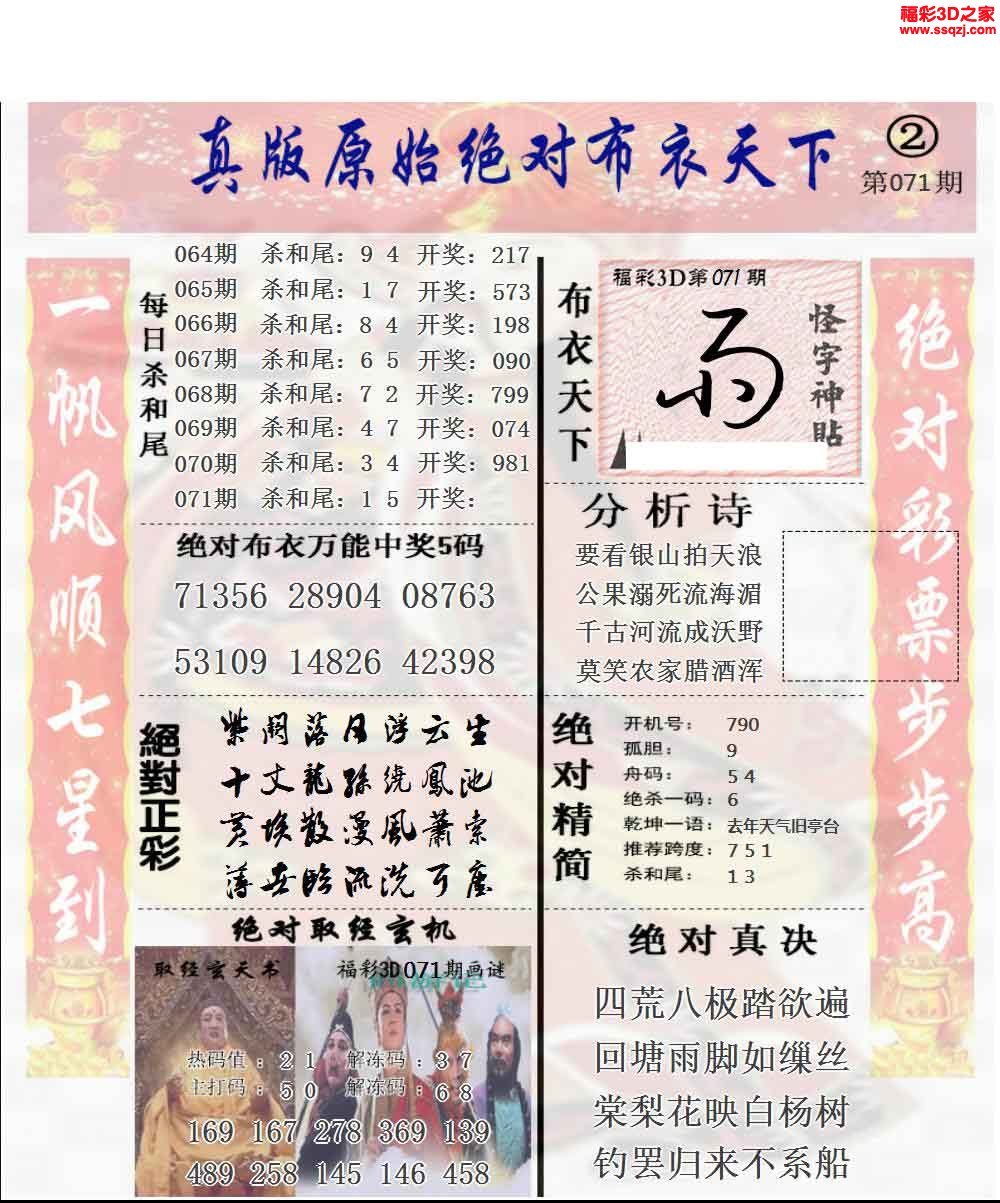 福彩3D之家
www.ssqzj.com
真版原始绝对布衣天下
②
第071期
一帆风顺七星到
每日杀和尾
064期 杀和尾：9 4 开奖：217
065期 杀和尾：1 7 开奖：573
066期 杀和尾：8 4 开奖：198
067期 杀和尾：6 5 开奖：090
068期 杀和尾：7 2 开奖：799
069期 杀和尾：4 7 开奖：074
070期 杀和尾：3 4 开奖：981
071期 杀和尾：1 5 开奖：
绝对布衣万能中奖5码
71356 28904 08763
53109 14826 42398
絕對正彩
紫阁落日浮云生
十丈龍孫繞鳳池
黄埃散漫風蕭索
薄世临流洗耳塵
绝对取经玄机
取经玄天书
福彩3D071期画谜
热码值：2 1 解冻码：3 7
主打码：5 0 解冻码：6 8
169 167 278 369 139
489 258 145 146 458
布衣天下
福彩3D第071期
怪字神贴
分析诗
要看银山拍天浪
公果溺死流海湄
千古河流成沃野
莫笑农家腊酒浑
绝对精简
开机号： 790
孤胆： 9
舟码： 5 4
绝杀一码：6
乾坤一语：去年天气旧亭台
推荐跨度：7 5 1
杀和尾： 1 3
绝对真决
四荒八极踏欲遍
回塘雨脚如缫丝
棠梨花映白杨树
钓罢归来不系船
绝对彩票步步高